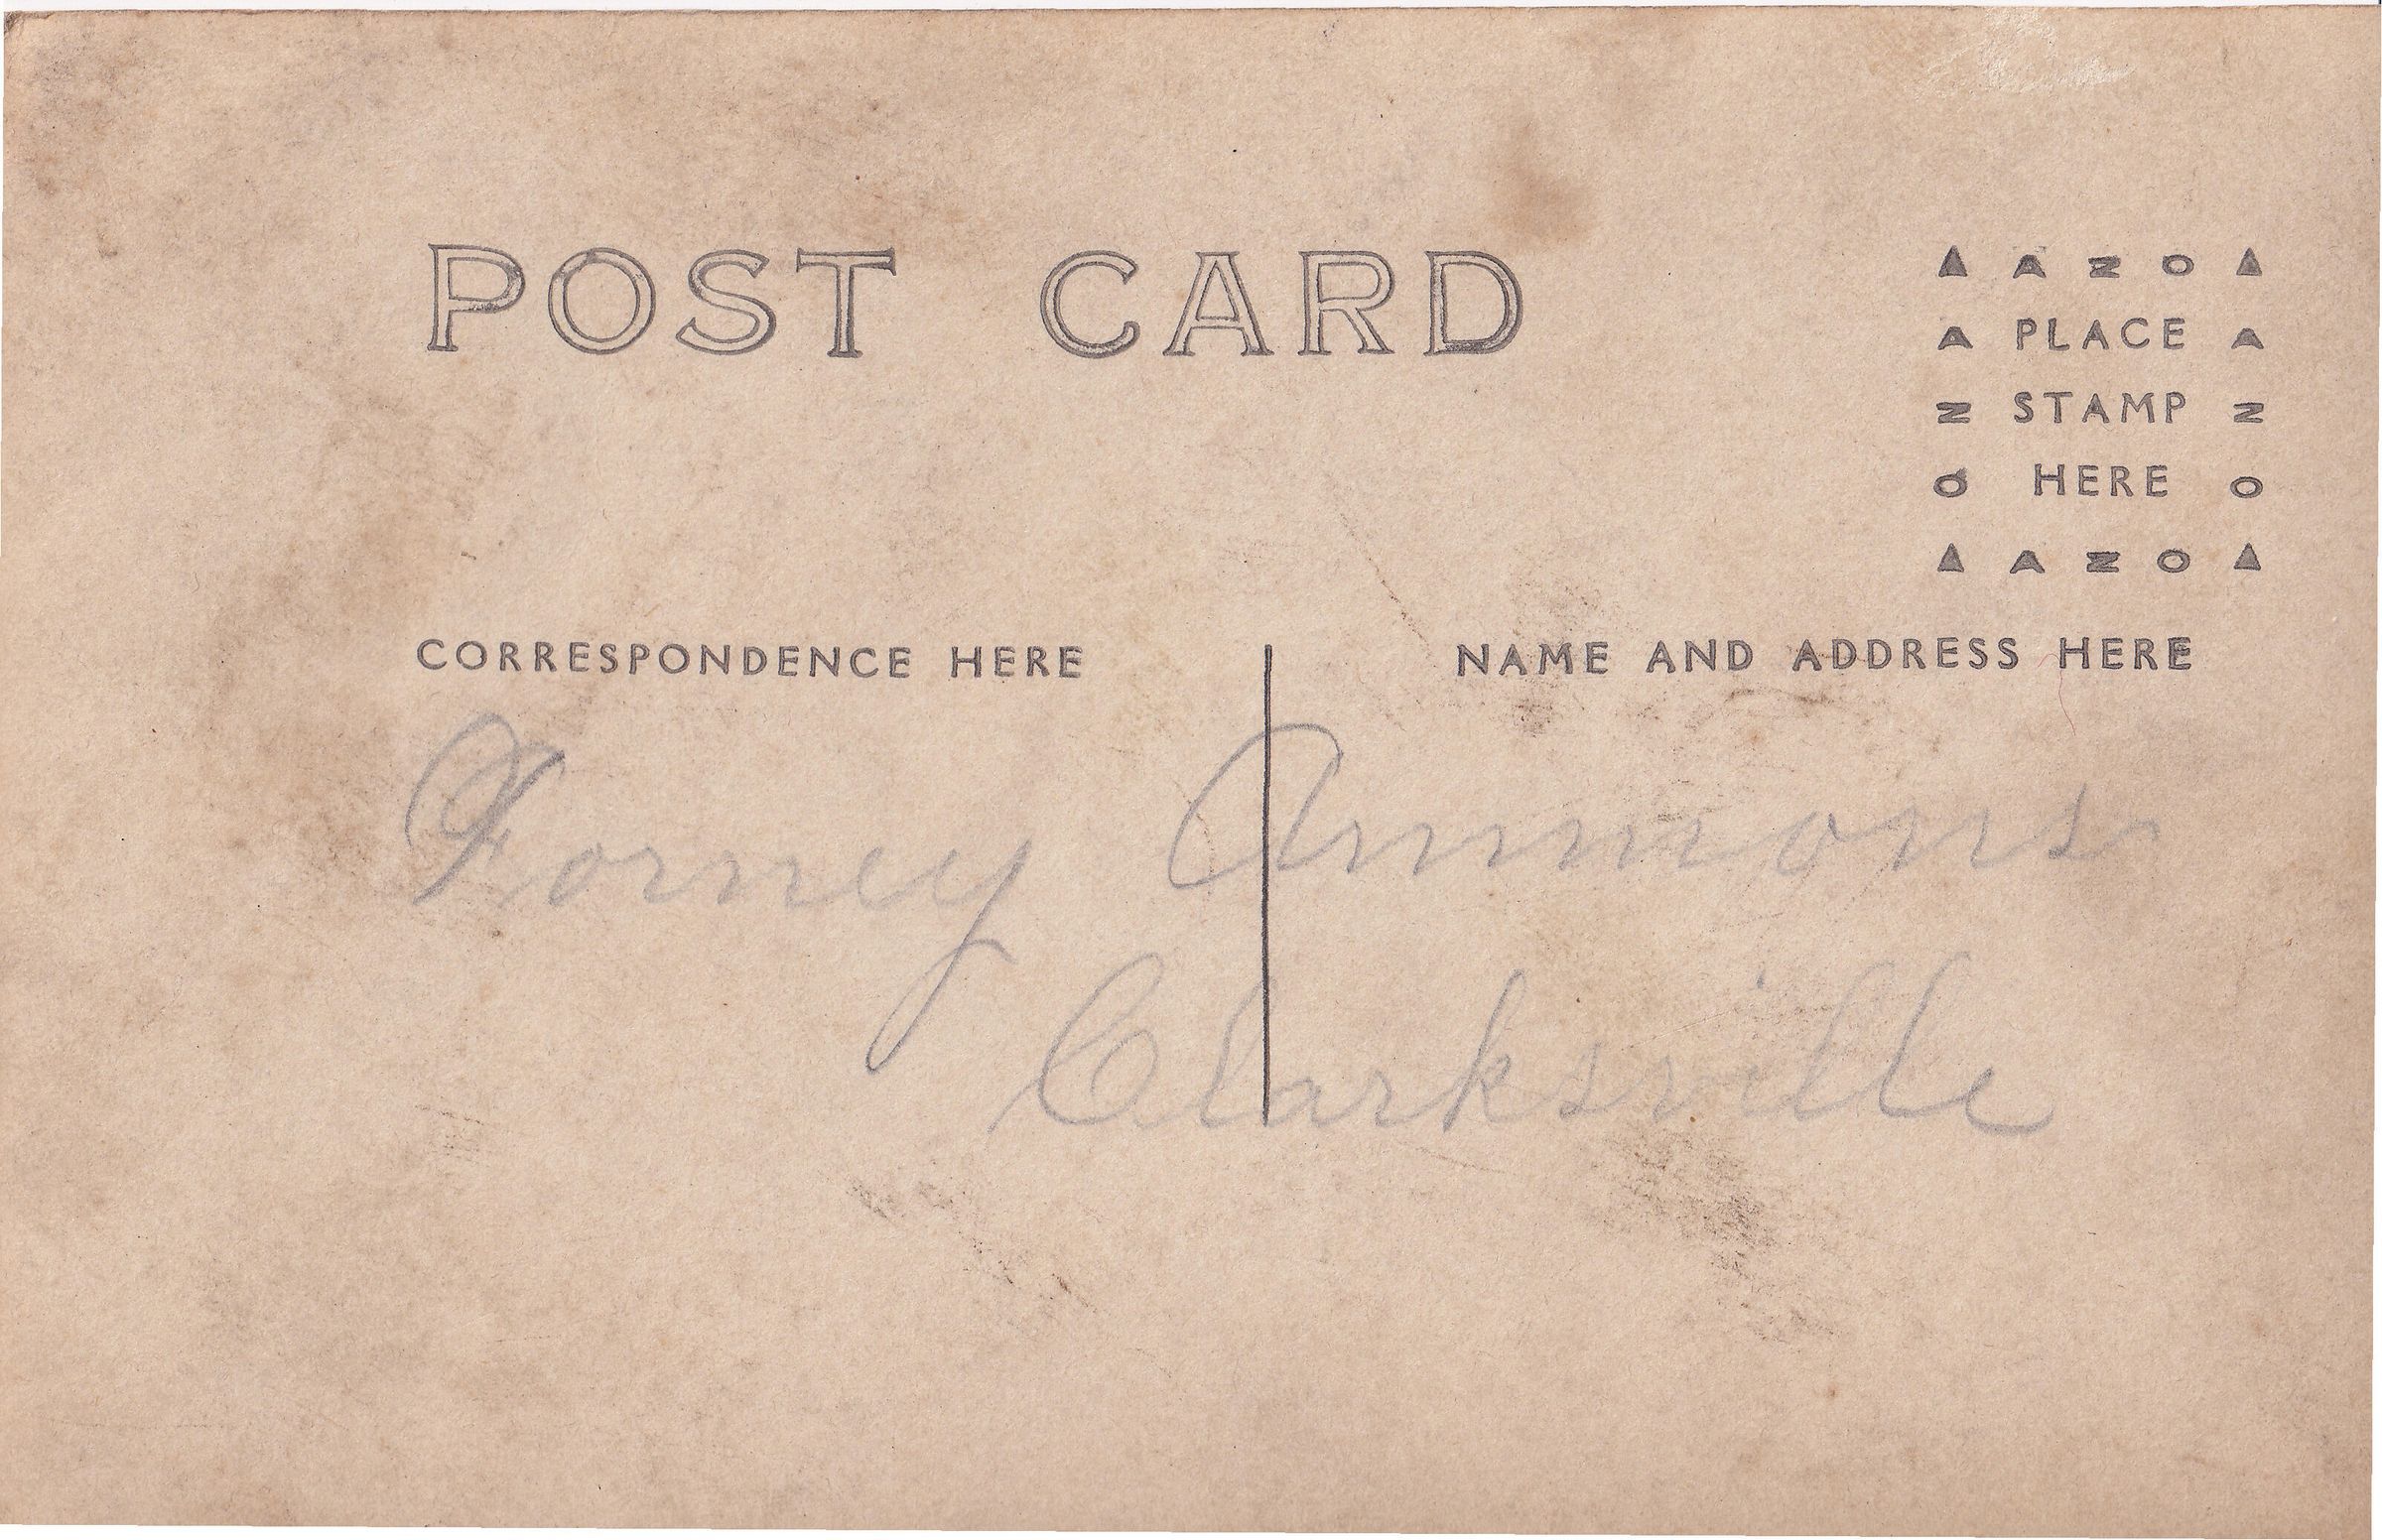 POST CARD
▲ A Z O ▲
A PLACE A
Z STAMP Z
O HERE O
▲ A Z O ▲
CORRESPONDENCE HERE
NAME AND ADDRESS HERE
Forney Ammons
Clarksville